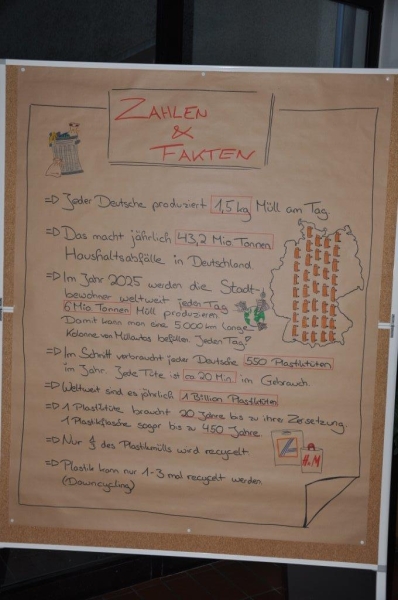 ZAHLEN
&
FAKTEN
=D Jeder Deutsche produziert 1,5 kg Müll am Tag
=D Das macht jährlich 43,2 Mio. Tonnen
Haushaltsabfälle in Deutschland.
=D Im Jahr 2025 werden die Stadt-
bewohner weltweit jeden Tag
6 Mio. Tonnen Müll produzieren
Damit kann man eine 5.000 km lange
Kolonne von Müllautos befüllen. Jeden Tag!
=D Im Schnitt verbraucht jeder Deutsche 550 Plastiktüten
im Jahr. Jede Tüte ist ca 20 Min. im Gebrauch.
=D Weltweit sind es jährlich 1 Billion Plastiktüten
=D 1 Plastiktüte braucht 20 Jahre bis zu ihrer Zersetzung.
1 Plastikflasche sogar bis zu 450 Jahre.
=D Nur des Plastikmülls wird recycelt
H&M
=D Plastik kann nur 1-3 mal recycelt werden
(Downcycling)